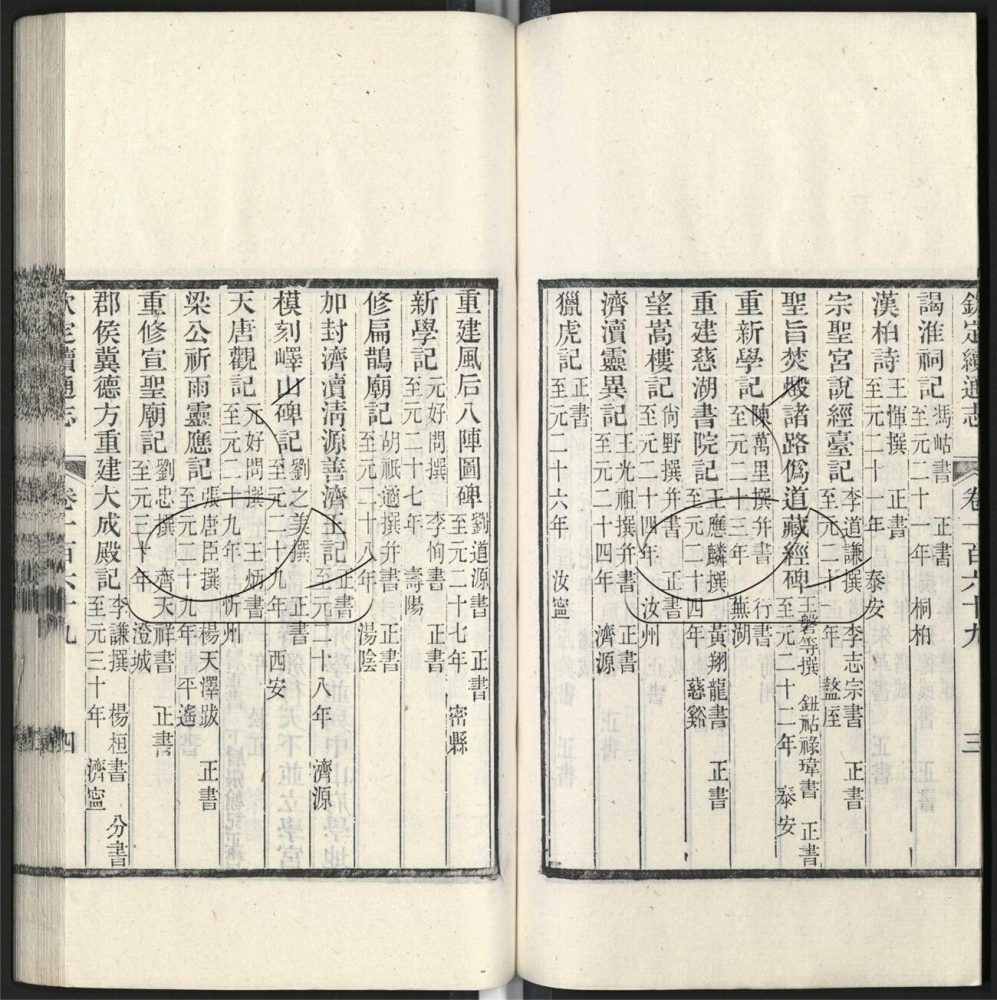 欽定續通志 卷一百六十九 三
謁淮祠記 馮岵書 正書 至元二十一年 桐柏
漢柏詩 王惲撰 正書 至元二十一年 泰安
宗聖宮說經臺記 李道謙撰 李志宗書 正書 至元二十一年 盩厔
聖旨焚燬諸路僞道藏經碑 王磐等撰 鈕祜祿瑋書 正書 至元二十二年 泰安
重新學記 陳萬里撰幷書 行書 至元二十三年 蕪湖
重建慈湖書院記 王應麟撰 黃翔龍書 正書 至元二十四年 慈谿
望嵩樓記 尙野撰幷書 正書 至元二十四年 汝州
濟瀆靈異記 王光祖撰幷書 正書 至元二十四年 濟源
獵虎記 正書 至元二十六年 汝寧
重建風后八陣圖碑 劉道源書 正書 至元二十七年 密縣
新學記 元好問撰 李恂書 正書 至元二十七年 壽陽
修扁鵲廟記 胡祇遹撰幷書 正書 至元二十八年 湯陰
加封濟瀆淸源善濟王記 正書 至元二十八年 濟源
模刻嶧山碑記 劉之美撰 正書 至元二十九年 西安
天唐觀記 元好問撰 王炳書 至元二十九年 忻州
梁公祈雨靈應記 張唐臣撰 楊天澤跋 正書 至元二十九年 平遙
重修宣聖廟記 劉忠撰 齊天祥書 正書 至元三十年 澄城
郡侯冀德方重建大成殿記 李謙撰 楊桓書 分書 至元三十年 濟寧
欽定續通志 卷一百六十九 四